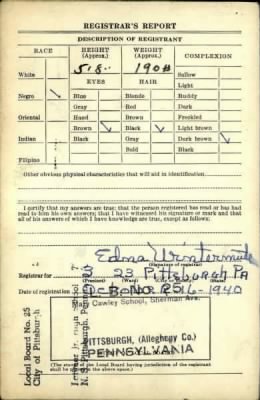 REGISTRAR'S REPORT
DESCRIPTION OF REGISTRANT
RACE
HEIGHT
(Approx.)
WEIGHT
(Approx.)
COMPLEXION
5.8.
190#
White
Sallow
EYES
HAIR
Light
Negro ✓
Blue
Blonde
Ruddy
Gray
Red
Dark
Oriental
Hazel
Brown
Freckled
Brown ✓
Black ✓
Light brown
Indian
Black
Gray
Dark brown ✓
Bald
Black
Filipino
Other obvious physical characteristics that will aid in identification
I certify that my answers are true; that the person registered has read or has had
read to him his own answers; that I have witnessed his signature or mark and that
all of his answers of which I have knowledge are true, except as follows:
Edna Wintermute
(Signature of registrar)
Registrar for 3 23 Pittsburgh Pa
Mary Cawley School, Sherman Ave.
Date of registration 16-1940
LOCAL BOARD NO. 25
PITTSBURGH, (Allegheny Co.)
PENNSYLVANIA
(The stamp of the Local Board having jurisdiction of the registrant
shall be placed in the above space.)
Local Board No. 25
City of Pittsburgh